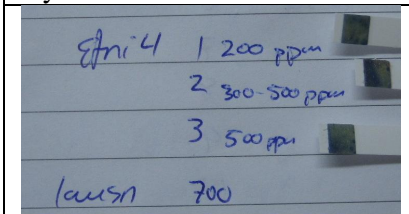 Efni 4 1 200 ppm
2 300-500 ppm
3 500 ppm
lausn 700